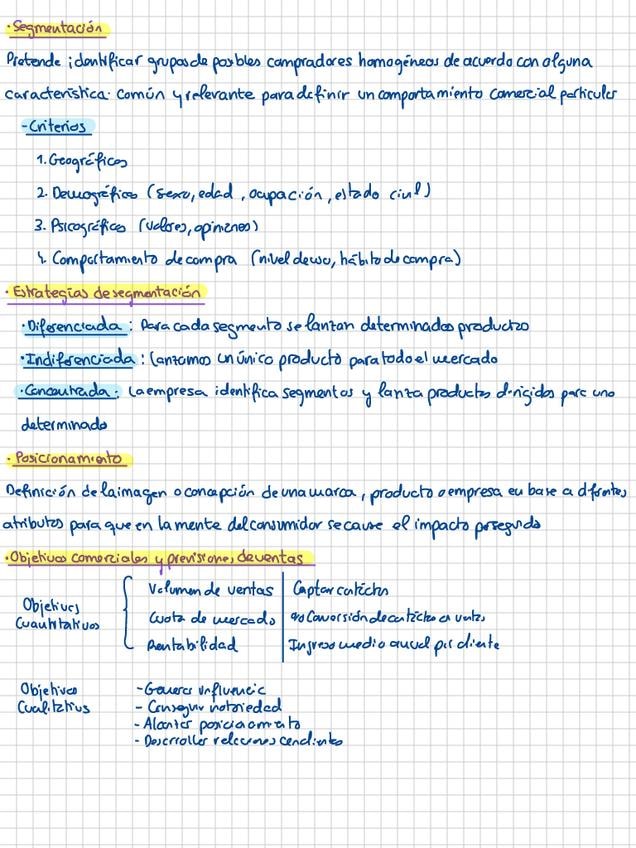 · Segmentación
Pretende identificar grupos de posibles compradores homogéneos de acuerdo con alguna
característica común y relevante para definir un comportamiento comercial particular
- Criterios
1. Geográficos
2. Demográficos (sexo, edad, ocupación, estado civil)
3. Psicográficos (valores, opiniones)
4. Comportamiento de compra (nivel de uso, hábito de compra)
· Estrategias de segmentación
· Diferenciada: Para cada segmento se lanzan determinados productos
· Indiferenciada: Lanzamos un único producto para todo el mercado
· Concentrada: La empresa identifica segmentos y lanza productos dirigidos para uno
determinado
· Posicionamiento
Definición de la imagen o concepción de una marca, producto o empresa en base a diferentes
atributos para que en la mente del consumidor se cause el impacto perseguido
· Objetivos comerciales y previsiones de ventas
Objetivos Cuantitativos
Volumen de ventas | Captar
Cuota de mercado | % Conversión de en ventas
Rentabilidad | Ingreso medio anual por cliente
Objetivos Cualitativos
- Generar influencia
- Conseguir notoriedad
- Alcanzar posicionamiento
- Desarrollar relaciones con clientes